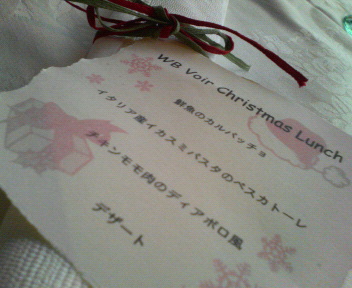 WB Voir Christmas Lunch
鮮魚のカルパッチョ
イタリア産イカスミパスタのペスカトーレ
チキンモモ肉のディアボロ風
デザート